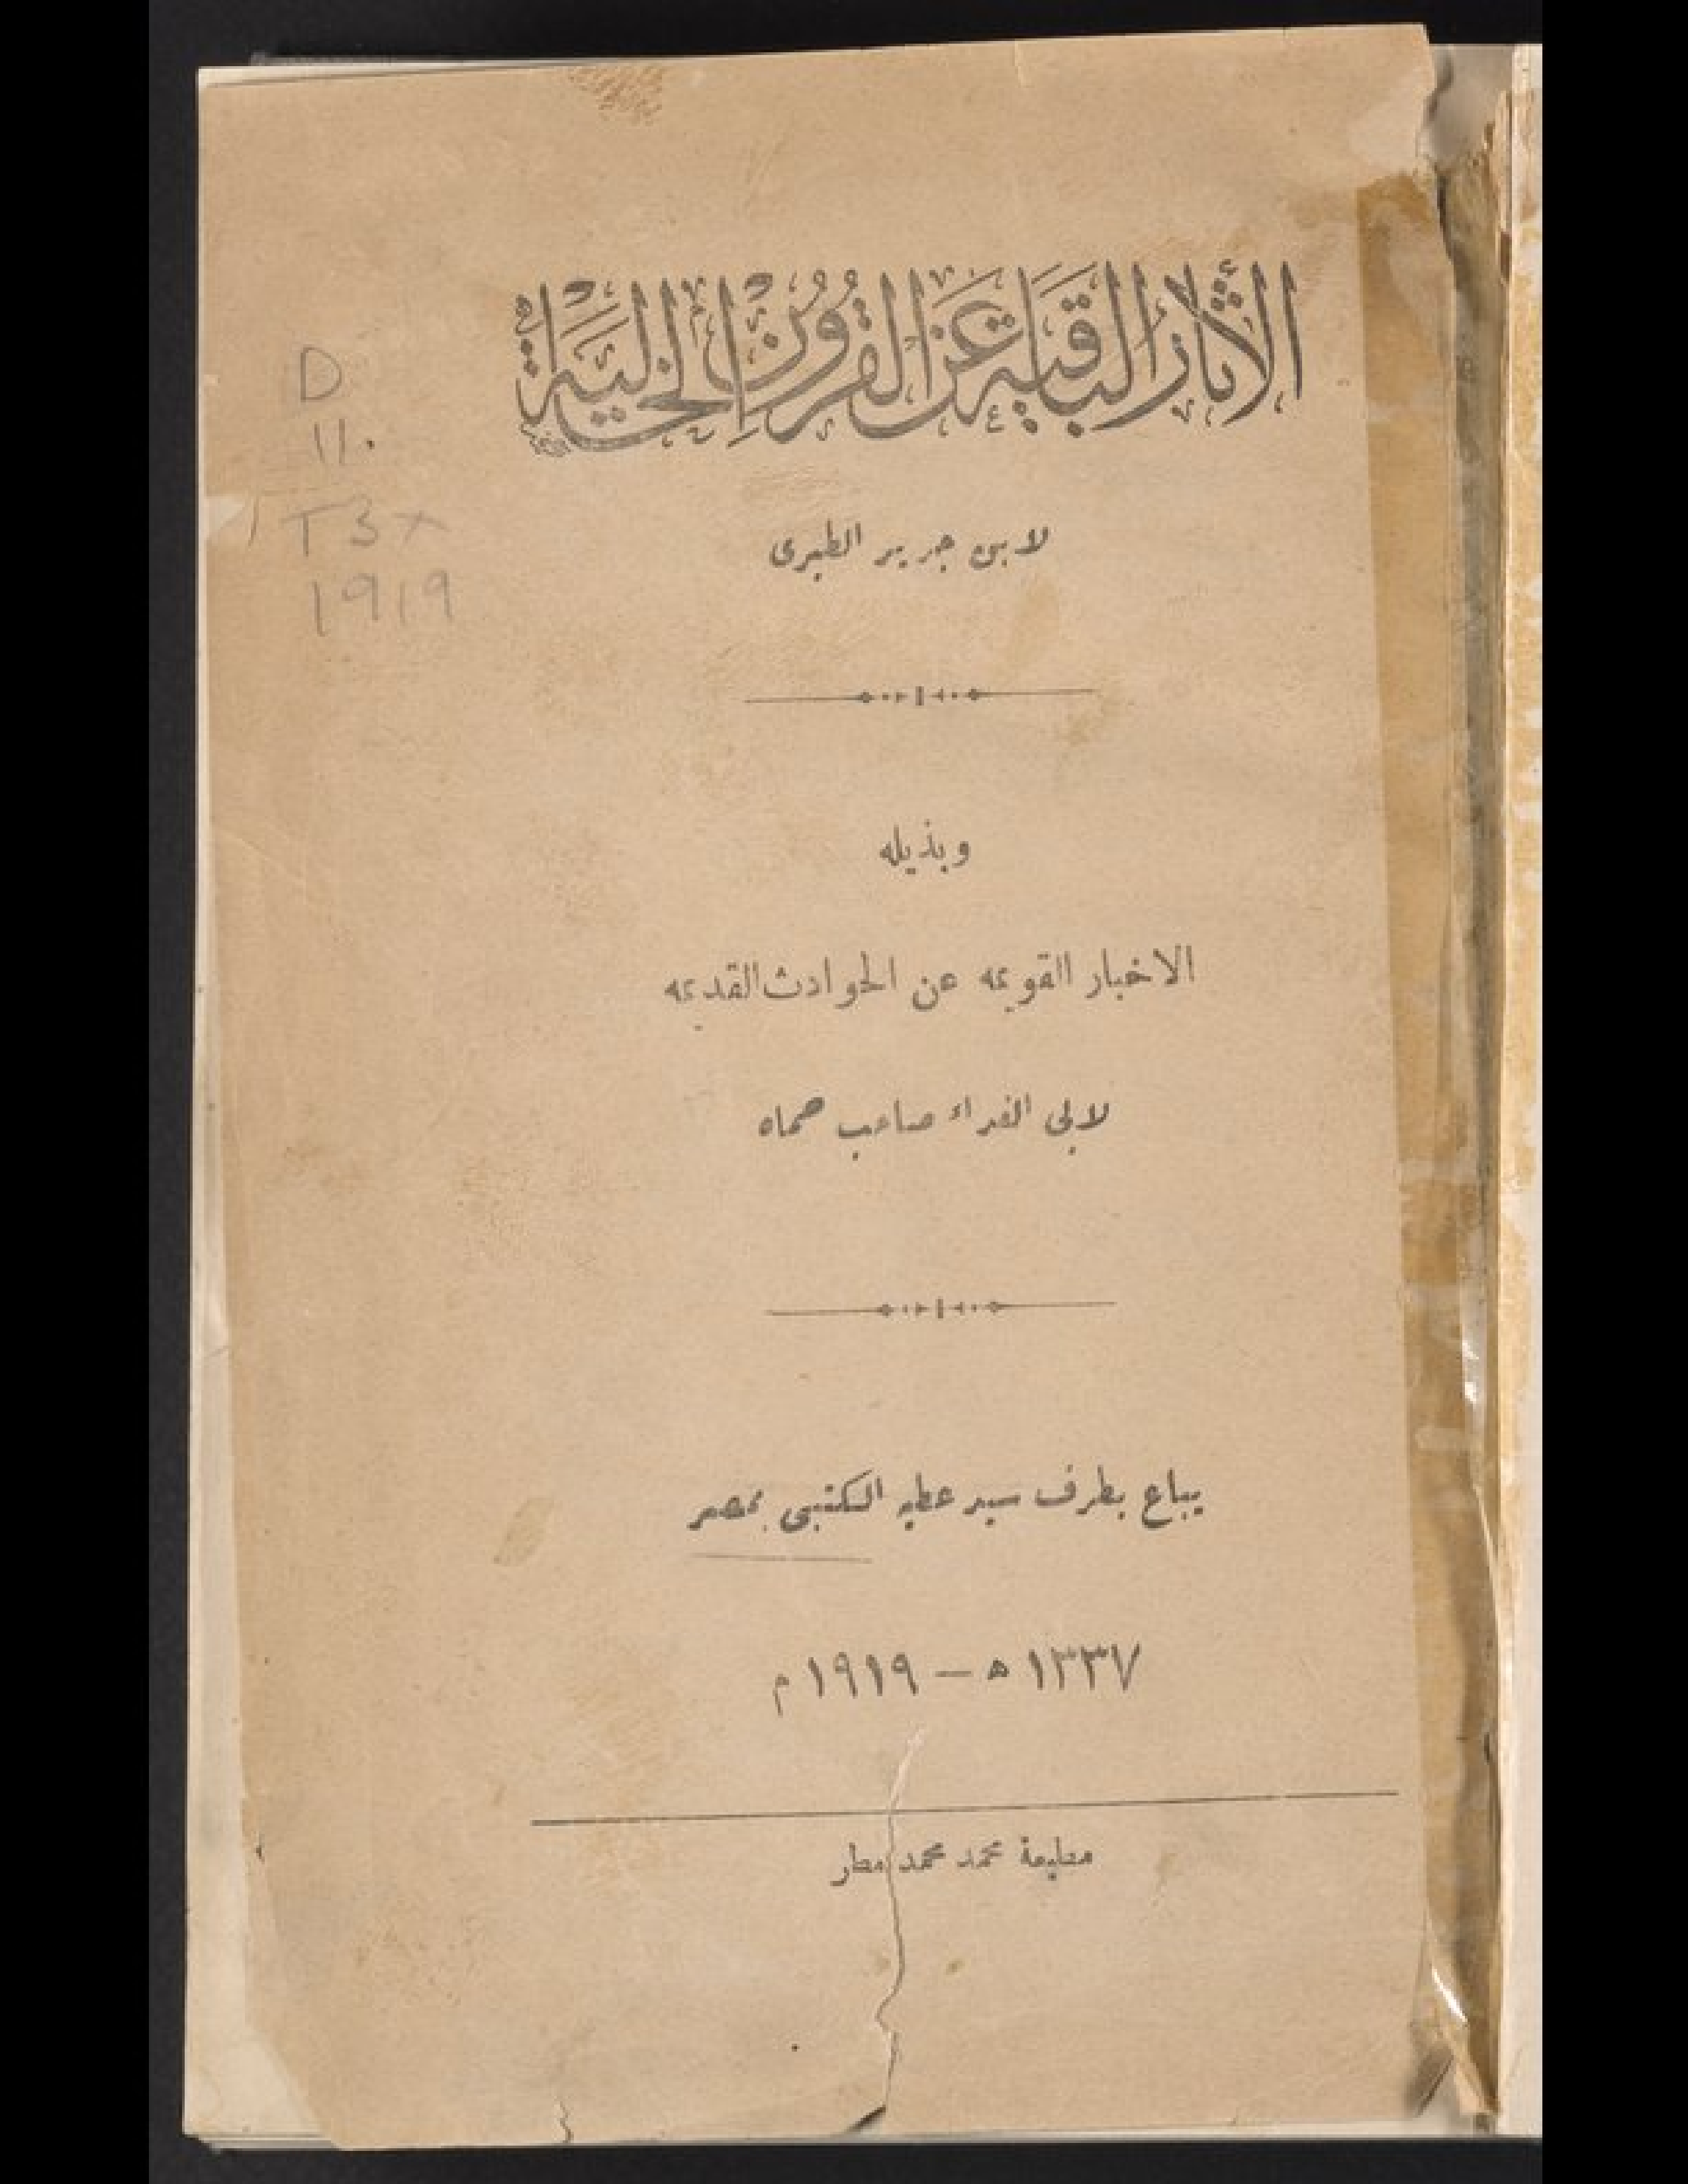 الآثار الباقية عن القرون الخالية
D
110
T3x
1919
لابن جرير الطبرى
وبذيله
الاخبار القويمه عن الحوادث القديمه
لابى الفداء صاحب حماه
يباع بطرف سيد عطيه الكتبى بمصر
١٣٣٧ ه – ١٩١٩ م
مطبعة محمد محمد مطر